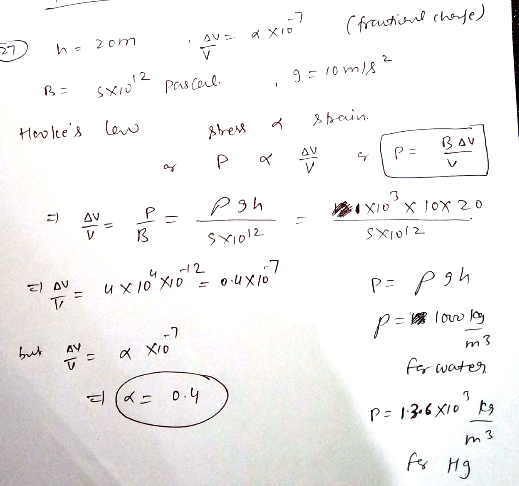 27) h = 20m , ΔV/V = α x 10^-7 (fractional change)
B = 5x10^12 Pascal. , g = 10 m/s^2
Hooke's law stress α strain.
or P α ΔV/V or P = BΔV/V
=> ΔV/V = P/B = ρgh / 5x10^12 = 1x10^3 x 10x20 / 5x10^12
=> ΔV/V = 4x10^4 x10^-12 = 0.4x10^-7
but ΔV/V = α x10^-7
=> α = 0.4
P = ρgh
ρ = 1000 kg/m3
for water
ρ = 13.6 x10^3 kg/m3
for Hg